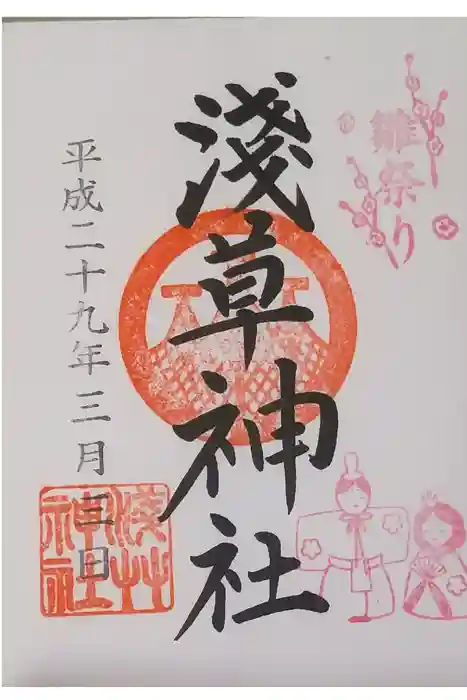 雛祭り
淺草神社
平成二十九年三月三日
淺草
神社